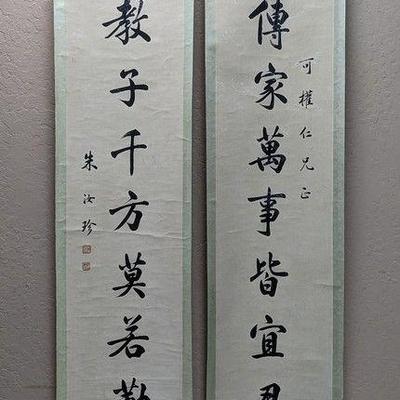 傳家萬事皆宜忍
可權仁兄正
教子千方莫若勤
朱汝珍